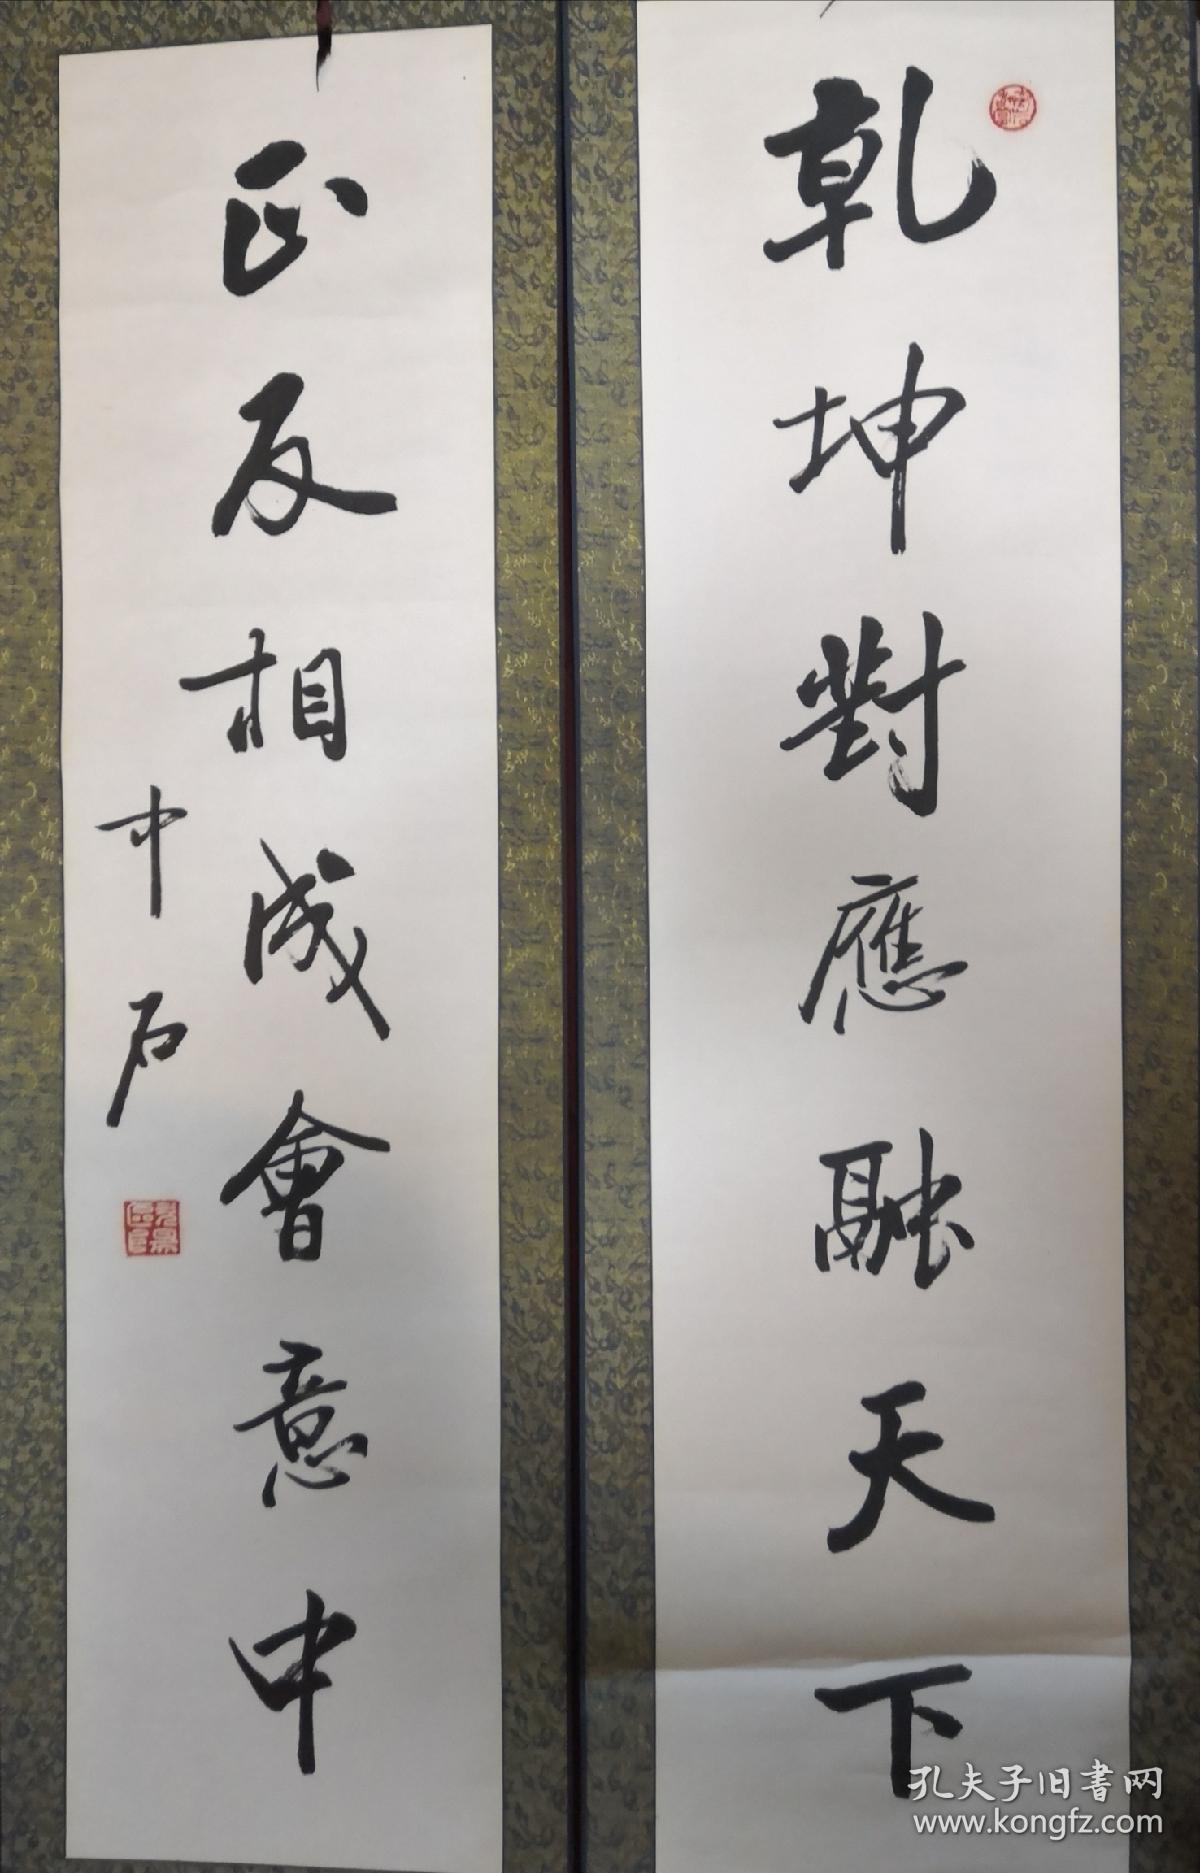 乾坤對應融天下
正反相成會意中
中石
孔夫子旧書网
www.kongfz.com